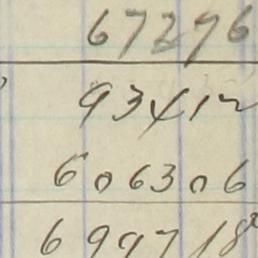 67276
93412
606306
699718